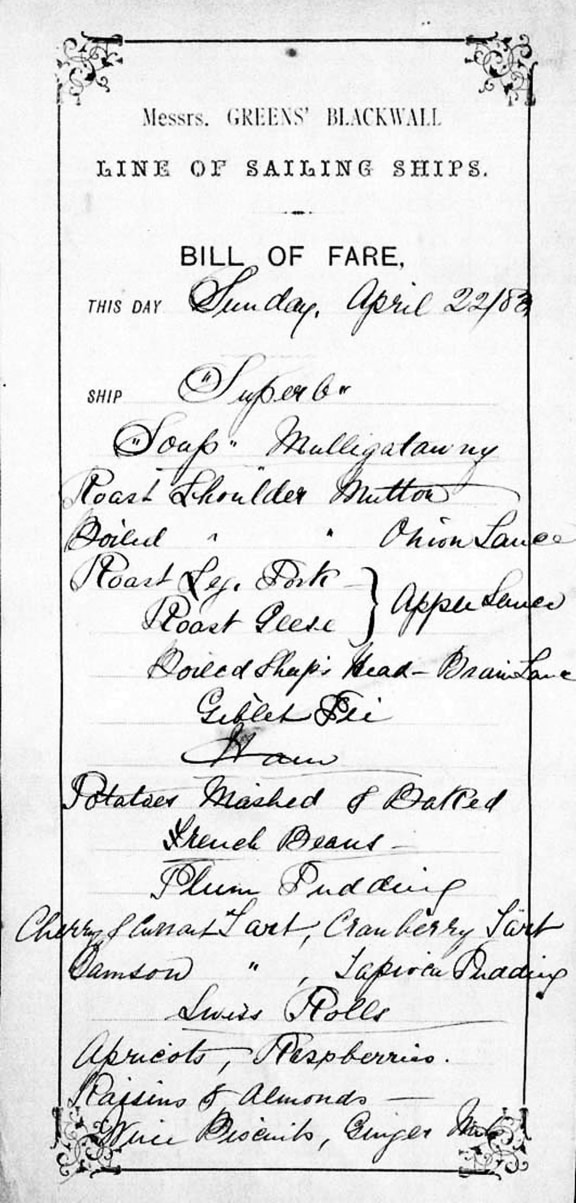 Messrs. GREENS' BLACKWALL
LINE OF SAILING SHIPS.
BILL OF FARE,
THIS DAY Sunday, April 22/83
SHIP "Superb"
"Soup" Mulligatawny
Roast Shoulder Mutton
Boiled " " Onion Sauce
Roast Leg. Pork } Apple Sauce
Roast Geese
Boiled Sheep's Head - Brain Sauce
Giblet Pie
Ham
Potatoes Mashed & Baked
French Beans -
Plum Pudding
Cherry & Currant Tart, Cranberry Tart
Damson " , Tapioca Pudding
Swiss Rolls
Apricots, Raspberries.
Raisins & Almonds -
Wine Biscuits, Ginger